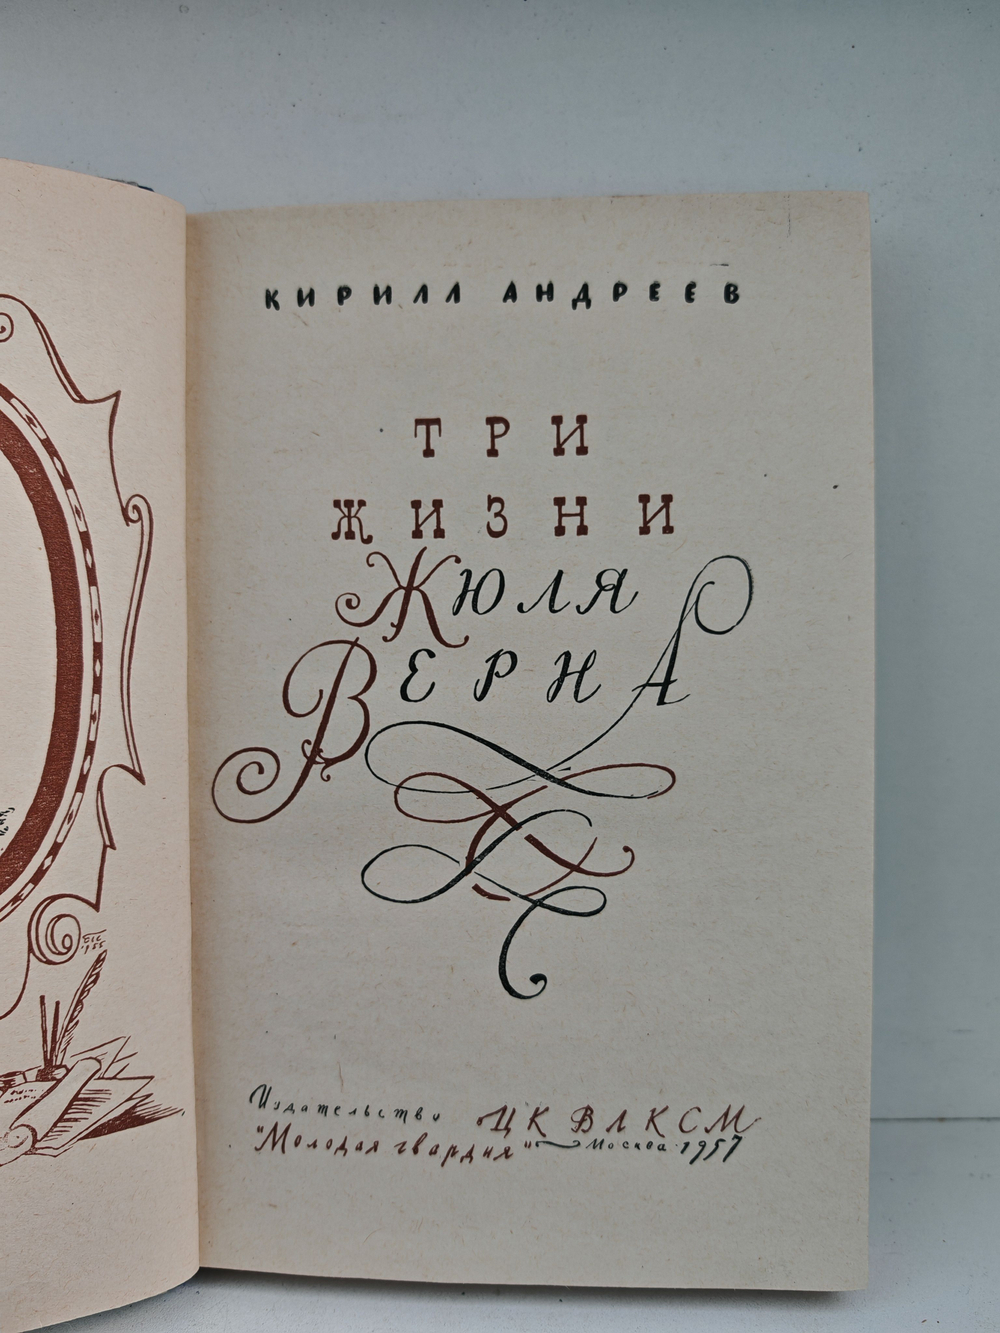 КИРИЛЛ АНДРЕЕВ
ТРИ
ЖИЗНИ
ЖЮЛЯ
ВЕРНА
Издательство ЦК ВЛКСМ
"Молодая гвардия" Москва 1957